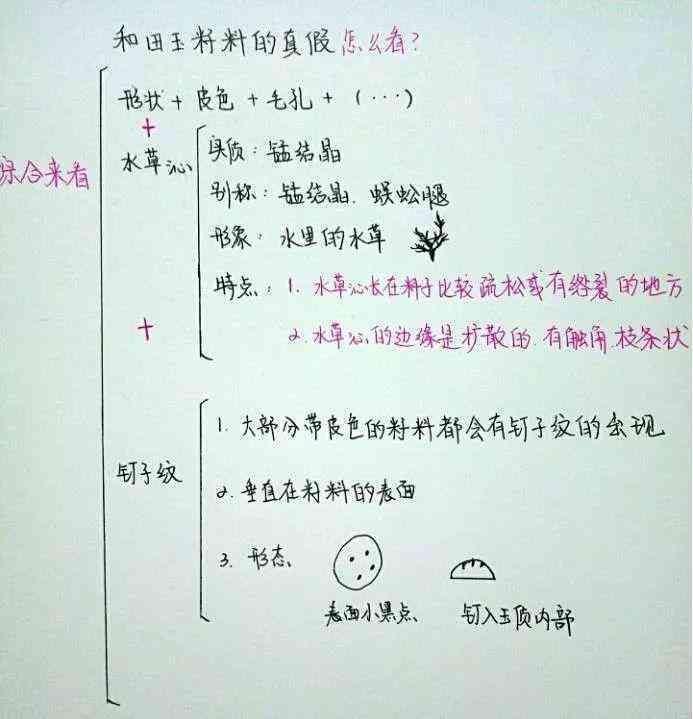 和田玉籽料的真假怎么看?
形状 + 皮色 + 毛孔 + (···)
+
综合来看
水草沁
实质: 锰结晶
别称: 锰结晶. 蜈蚣腿
形象: 水里的水草
特点: 1. 水草沁长在料子比较疏松或有绺裂的地方
+
2. 水草沁的边缘是扩散的.有触角.枝条状
钉子纹
1. 大部分带皮色的籽料都会有钉子纹的出现
2. 垂直在籽料的表面
3. 形态、
表面小黑点、 钉入玉质内部